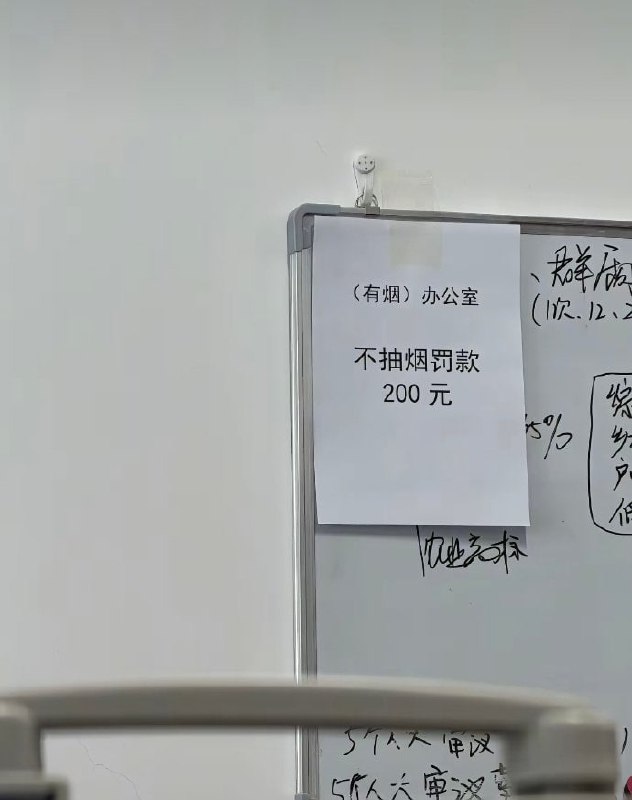 （有烟）办公室
不抽烟罚款
200 元
、群
(1次、12、2
35%
农业高标
5个人大审议
5个人大审议